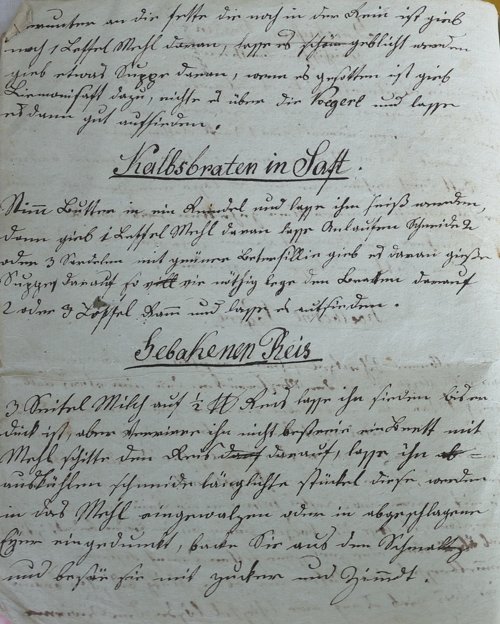 herunter an die fette die noch in der Rein ist gieb
noch 1 Leffel Mehl daran, lasse es schön geblicht werden
gieb etwas Suppe daran, wenn es gesotten ist gieb
Limonisaft dazu, richte es über die Vögerl und lasse
es dann gut aufsieden.
Kalbsbraten in Saft.
Nimm Butter in ein Reindel und lasse ihm heiß werden,
dann gieb 1 Leffel Mehl daran lasse Anlaufen schneide 2
oder 3 mit grünen Petersillie gieb es daran gieße
Suppe darauf so viel wie nöthig lege den Braten darauf
2 oder 3 Löffel Ramm und lasse es aufsieden.
Gebakenen Reis
3 Seitel Milch auf ½ ℔ Reis lasse ihn sieden bis er
dick ist, aber verrüre ihn nicht bestreue ein Brett mit
Mehl schitte den Reis darauf, lasse ihn
auskühlen schneide länglichte stückel diese werden
in das Mehl eingewalzen oder in abgeschlagene
Eyer eingedunkt, backe Sie aus den Schmaltz
und besäe sie mit zucker und Zimmdt.